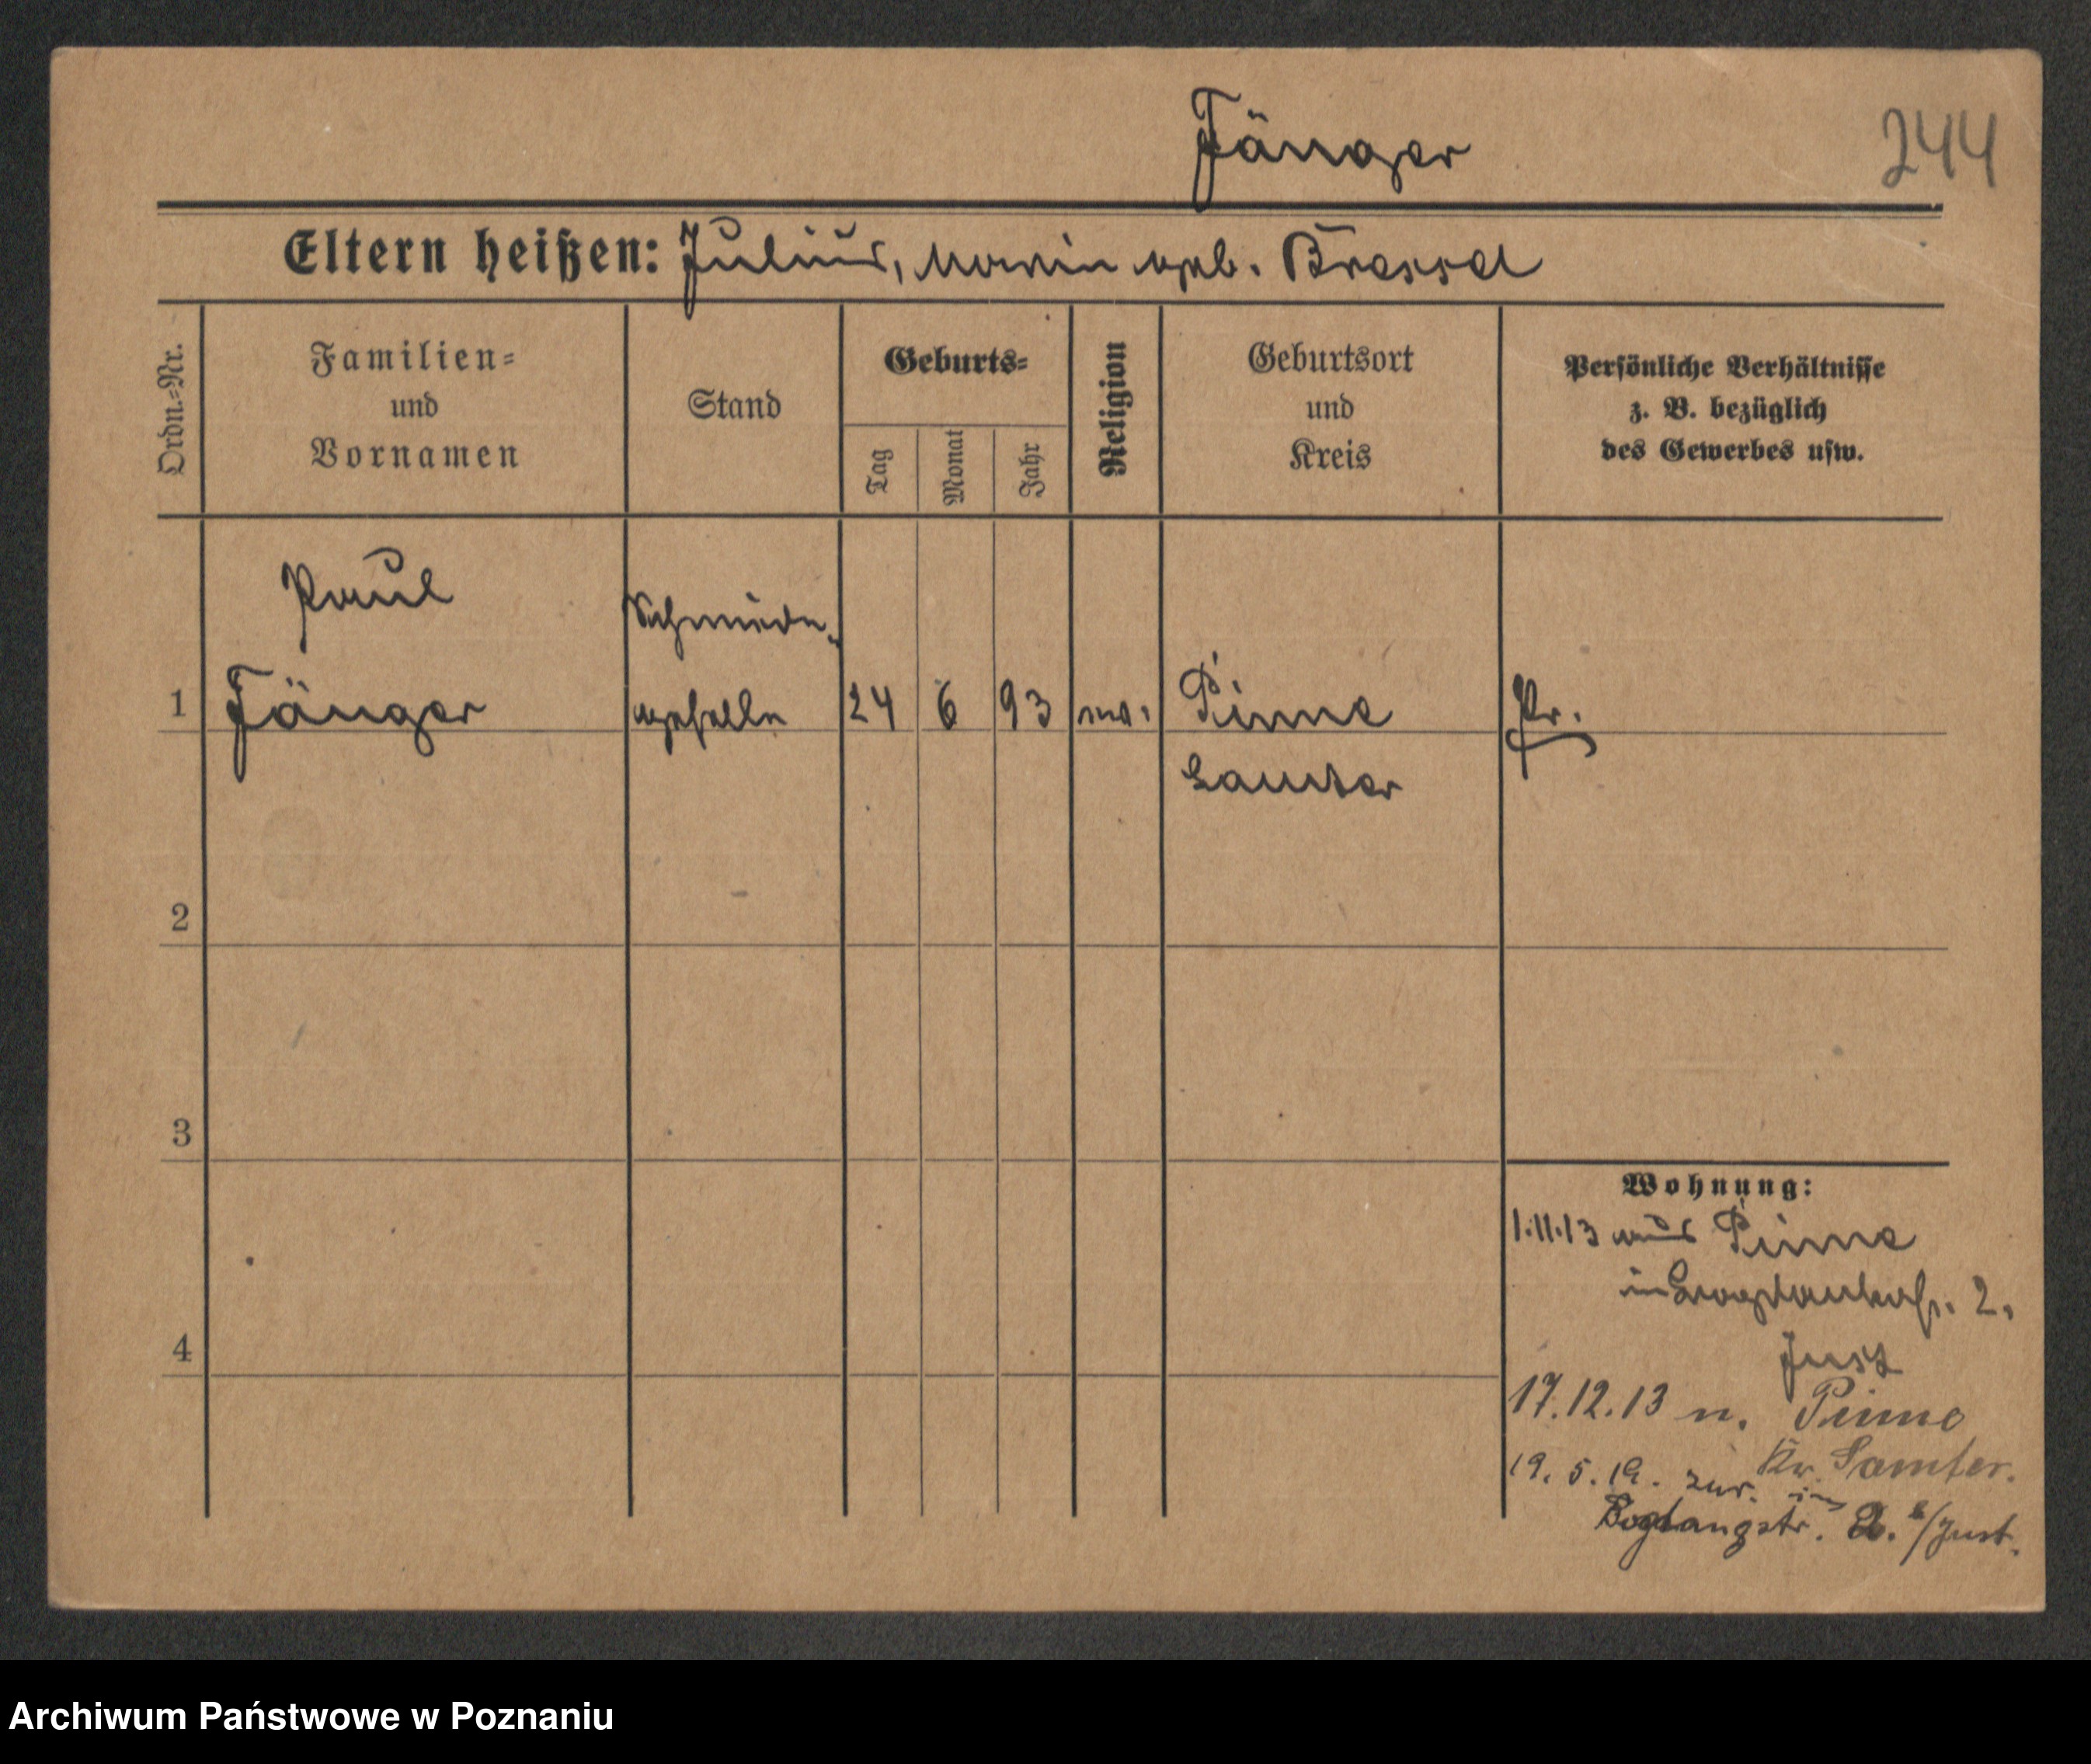 Fänger
244
Eltern heißen: Julius, Marie geb. Bressel
Ordn.-Nr.
Familien-
und
Vornamen
Stand
Geburts-
Tag
Monat
Jahr
Religion
Geburtsort
und
Kreis
Persönliche Verhältnisse
z. B. bezüglich
des Gewerbes usw.
Paul
Schmiede-
1 Fänger geselle 24 6 93 ev. Pinne Pr.
Samter
2
3
4
Wohnung:
1.11.13 aus Pinne
in 2.
Just
17.12.13 n. Pinne
Kr. Samter.
19. 5. 19. zur. in
2. b/Just.
Archiwum Państwowe w Poznaniu